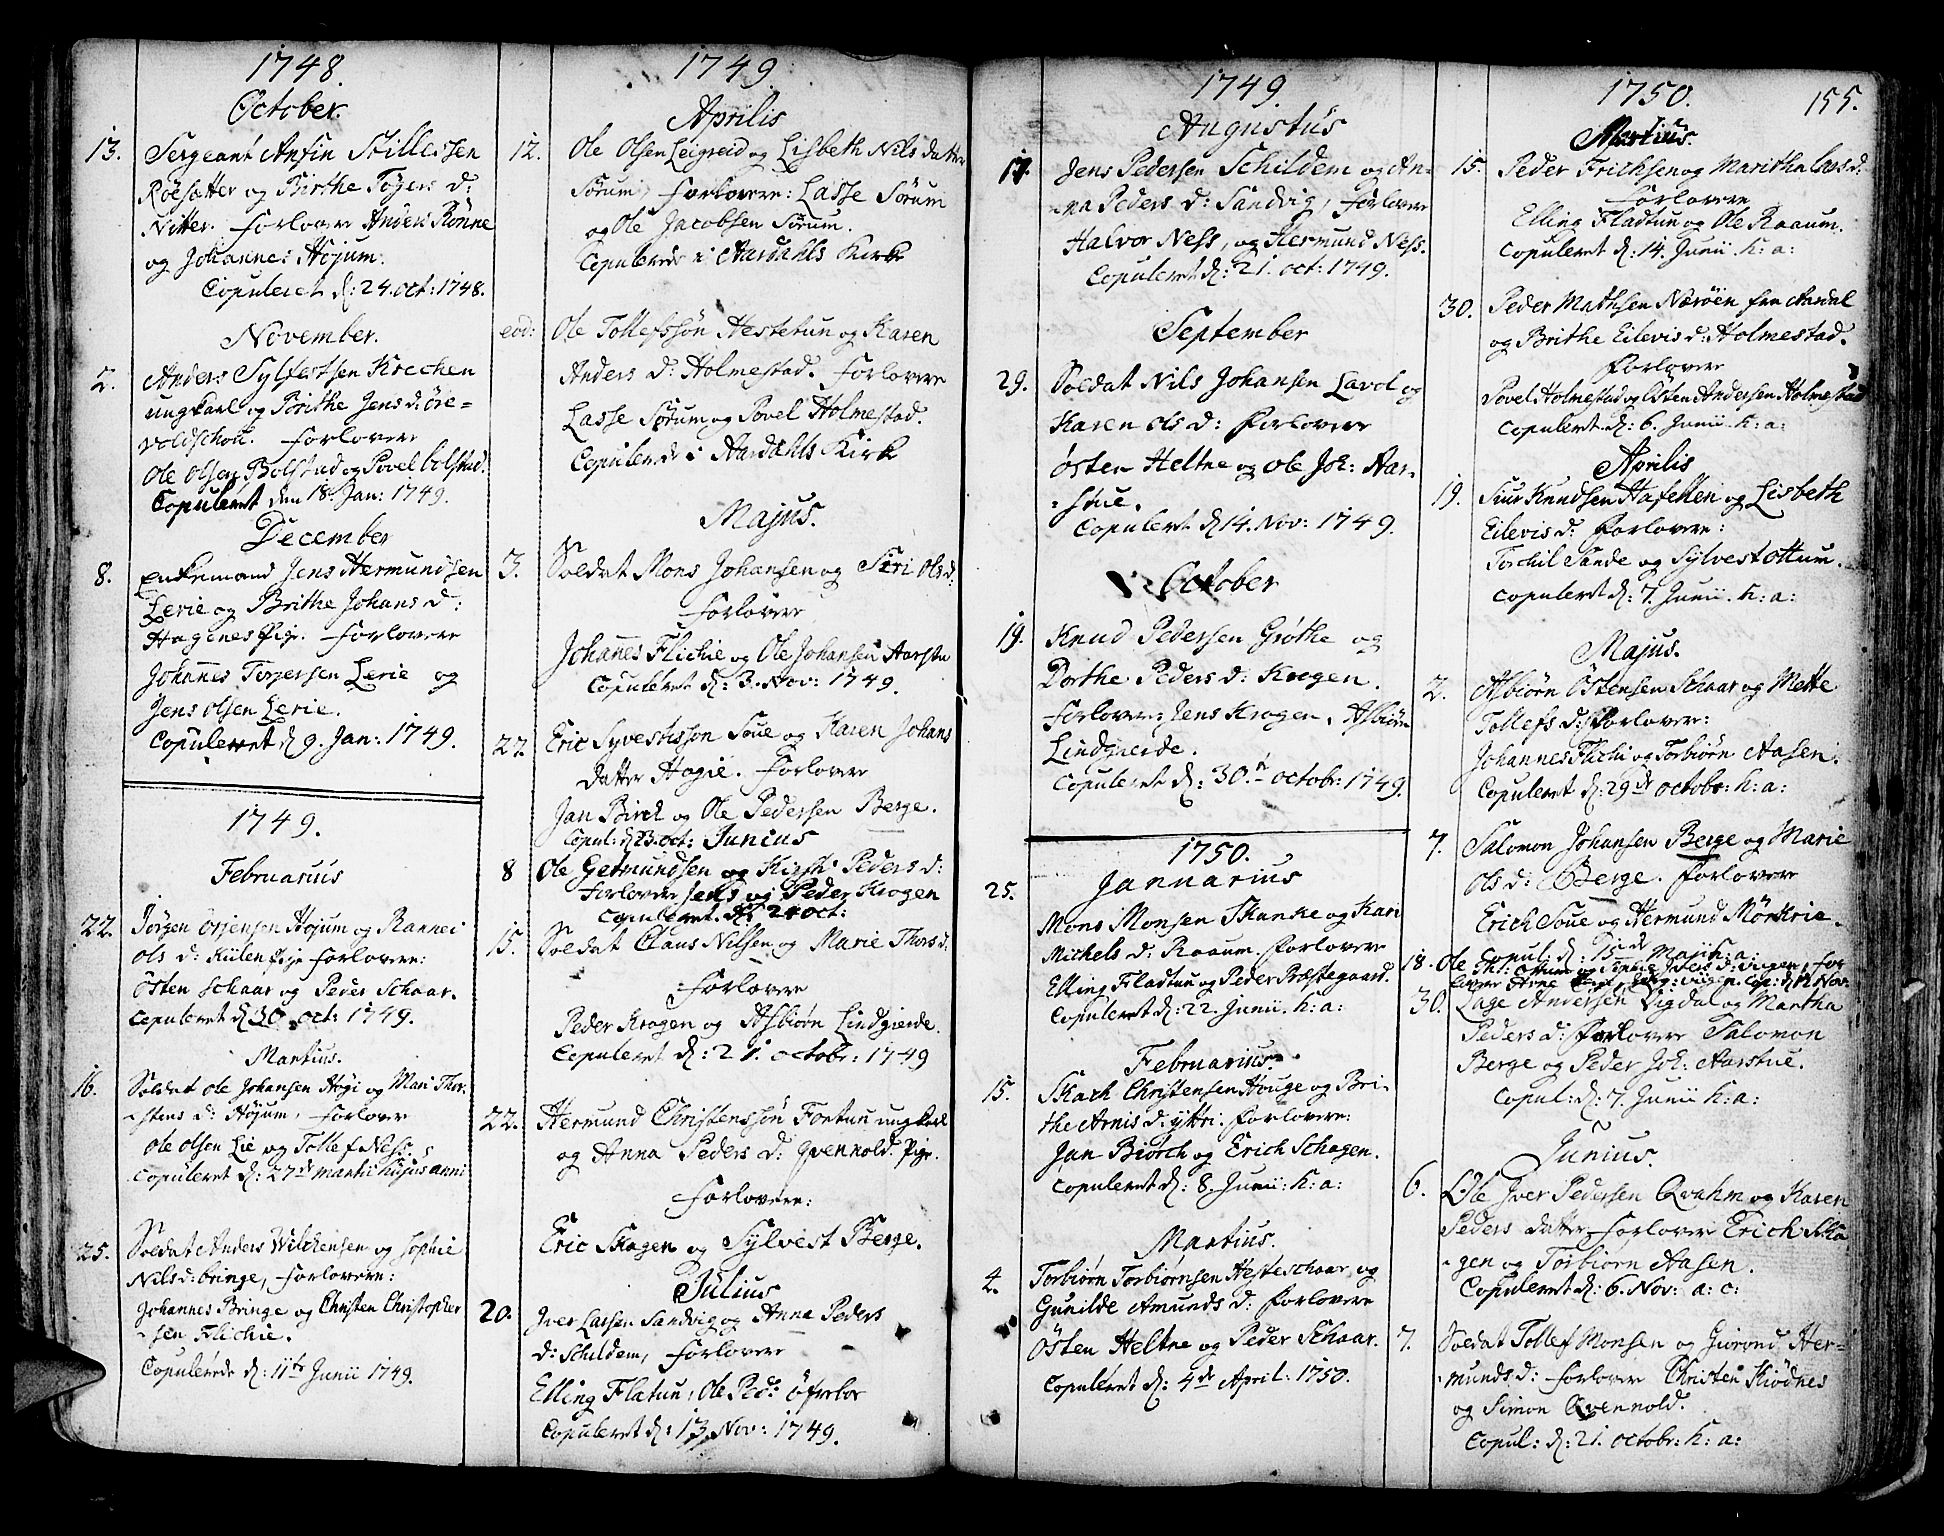 1748.
October.
13. Sergeant Anfin Stillessen
Röesetter og Birthe Tøgers d:
Nitter. Forlovere Anders Rønne
og Johannes Højum.
Copuleret d: 24. oct: 1748.
November.
2. Anders Sylfestsen Krechen
ungkarl og Brithe Jens d: Øre-
voldschou. Forlovere
Ole Olsen Bolstad og Povel bolstad.
Copuleret den 18. Jan: 1749.
December
8. Enkemand Jens Hermundsen
Lerie og Brithe Johans d:
Hagenes Pige. Forlovere
Johannes Torgersen Lerie og
Jens Olsen Lerie.
Copuleret d 9. Jan: 1749.
1749.
Februarius
22. Jörgen Højum og Rannei
Ols d: Pige Forlovere:
Østen Schaar og Peder Schaar.
Copuleret d 30. oct: 1749.
Martius.
16. Soldat Ole Johansen Høgi og Mari Thor-
stens d: Høјum, Forlover
Ole Olsen Lie og Tollef Ness.
Copuleret d: 27de Martii hujus anni
25. Soldat Anders Wilchensen og Sophie
Nils d: bringe, Forlovere:
Johannes Bringe og Christen Christopher
sen Flichie.
Copulerede d: 11te Junii 1749.
1749.
Aprilis
12. Ole Olsen Leigreid og Lisbeth Nils datter
Sørum, Forlovere: Lasse Sørum
og Ole Jacobsen Sørum.
Copulerede i Aardahls Kirk
eod: Ole Tollefssön Hestetun og Karen
Anders d: Holmestad. Forlovere
Lasse Sørum og Povel Holmestad.
Copulerede i Aardahls Kirk
Majus.
3. Soldat Mons Johansen og Siri Ols d:
Forlovere
Johannes Flichie og Ole Johansen Aarstu
Copuleret d: 3. Nov: 1749.
27. Eric Syvestissön Soue og Karen Johans
datter Hagie. Forlovere
Jan Birch og Ole Pedersen Berge.
Copul: d 23. oct: Junius
8 Ole Germundsen og Kirsti Peders d:
Forlovere Jens og Peder Krogen
Copuleret d 24 oct:
15. Soldat Claus Nilsen og Marie Thors d.
Forlovere
Peder Krogen og Asbiørn Lindgierde.
Copuleret d: 21. octobr: 1749
22. Hermund Christenssön Fortun ungkarl
og Anna Peders d: Qvennold. Pige.
Forlovere:
Eric Skagen og Sylvest Berge.
Julius
20. Jver Larsen Sandvig og Anna Peders
d: Schildem, Forlovere
Elling Flatun, Ole Ped: Øfrebøe
Copuleret d: 13. Nov: 1749.
1749.
Augustus
17. Jens Pedersen Schildem og An-
na Peders d: Sandvig, Forlovere
Halvor Ness, og Hermund Ness.
Copuleret d: 21. oct: 1749.
September
29. Soldat Nils Johansen Lavol og
Karen Ols d: Forlovere
Østen Heltne og Ole Joh: Aar-
stue.
Copuleret d 14. Nov: 1749.
October
19. Knud Pedersen Grøthe og
Dorthe Peders d: Krogen.
Forlovere: Jens Krogen, Asbiørn
Lindgierde.
Copuleret d: 30. octobr: 1749.
1750.
Januarius
25. Mons Monsen Skanke og Kari
Michels d: Raaum. Forlovere
Elling Fladtun og Peder Præstegaard.
Copuleret d: 22. Junii. h: a:
Februarius.
15. Skach Christensen Houge og Bri-
the Arnis d: yttri. Forlovere:
Jan Biörch og Erich Schagen.
Copuleret d: 8. Junii: h: a:
Martius.
4. Torbiørn Torbiørnsen Hesteschaar og
Gunilde Amunds d: Forlovere
Østen Heltne og Peder Schaar.
Copuleret d: 4de April: 1750.
1750.
155.
Martius.
15. Peder Frichsen og Maritha Lars d.
Forlovere
Elling Fladtun og Ole Raaum.
Copuleret d: 14. Junii. h: a:
30. Peder Mathsen Nærøen fra Aardal
og Brithe Eilevis d: Holmestad.
Forlovere
Povel Holmestad og Østen Andersen Holmestad
Copuleret d: 6. Junii. h: a:
Aprilis
19. Siur Knudsen Hafellen og Lisbeth
Eilevis d: Forlovere:
Torchil Sande og Sylvest Ottum.
Copuleret d: 7. Junii. h: a:
Majus.
2. Asbiørn Østensen Schaar og Mette
Tollefs d: Forlovere:
Johannes Flichi og Torbiørn Aasen.
Copuleret d: 29de octobr: h: a:
7. Salomon Johansen Berge og Marie
Ols d: Berge. Forlovere
Erich Soue og Hermund Mörkrie
Copul: d: 15de Maji h: a:
18. Ole Th: Ottum og d: , For
lovere Arne . Cop: d 12 Nov:
30. Lage Andersen Vigdal og Martha
Peders d: Forlovere Salomon
Berge og Peder Joh: Aarstue.
Copul: d: 7. Junii h: a:
Junius.
6. Ole Jver Pedersen Qvahm og Karen
Peders datter Forlovere Erich Ska
gen og Torbiørn Aasen.
Copuleret d: 6. Nov: a: c:
7. Soldat Tollef Monsen og Guirond Her-
munds d: Forlovere Christen Kiødnes
og Simon Qvennold.
Copul: d: 21. octobr: h: a: